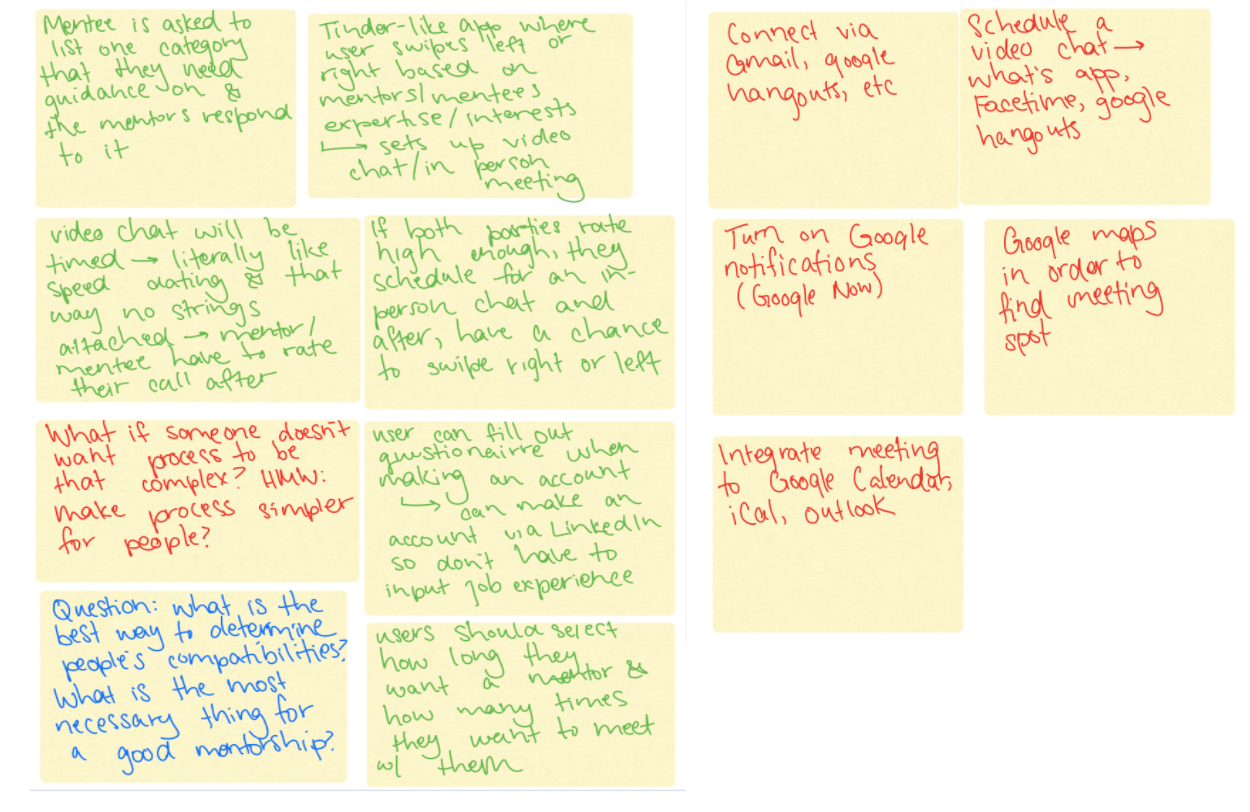 Mentee is asked to
list one category
that they need
guidance on &
the mentors respond
to it
Tinder-like app where
user swipes left or
right based on
mentors/mentees
expertise/interests
↳ sets up video
chat/in person
meeting
video chat will be
timed → literally like
speed dating & that
way no strings
attached → mentor/
mentee have to rate
their call after
If both parties rate
high enough, they
schedule for an in-
person chat and
after, have a chance
to swipe right or left
What if someone doesn't
want process to be
that complex? HMW:
make process simpler
for people?
user can fill out
questionairre when
making an account
↳ can make an
account via LinkedIn
so don't have to
input job experience
Question: what is the
best way to determine
people's compatibilities?
What is the most
necessary thing for
a good mentorship?
users should select
how long they
want a mentor &
how many times
they want to meet
w/ them
Connect via
Gmail, google
hangouts, etc
Schedule a
video chat →
what's app,
Facetime, google
hangouts
Turn on Google
notifications
(Google Now)
Google maps
in order to
find meeting
spot
Integrate meeting
to Google Calendar,
iCal, outlook